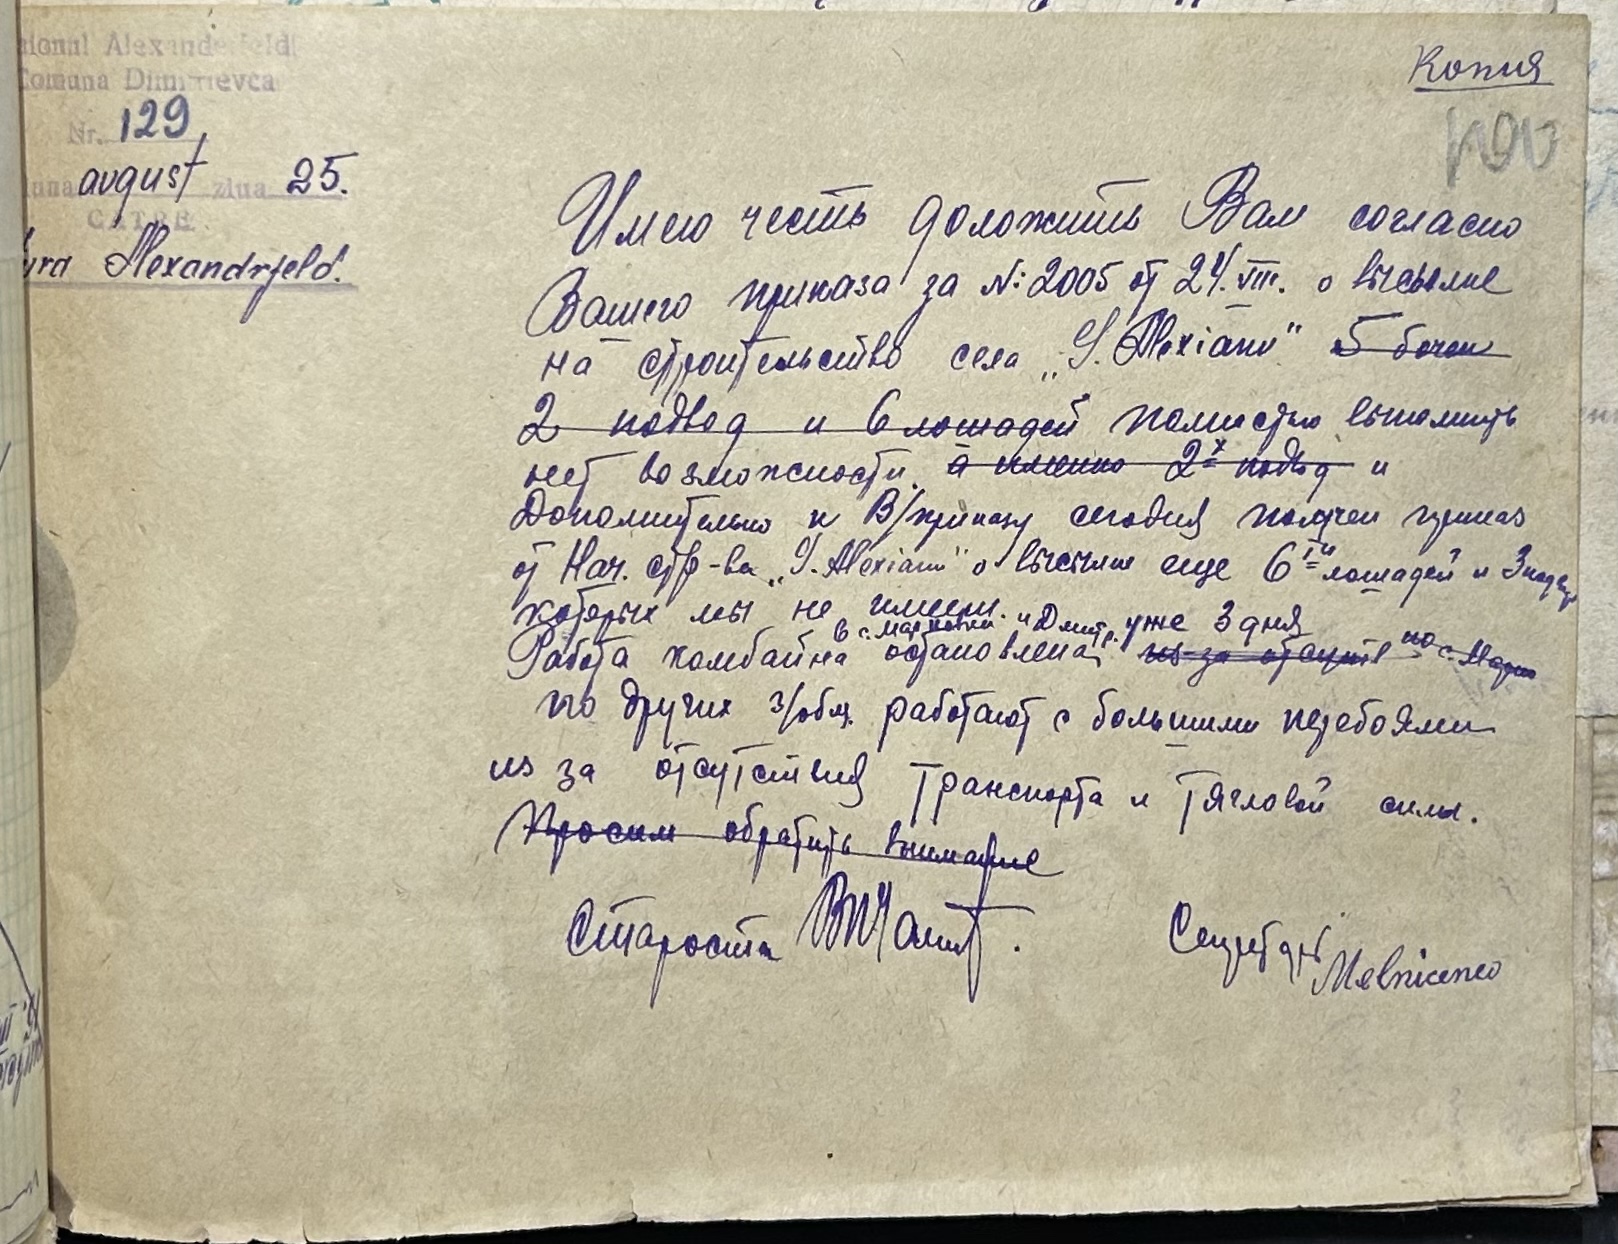 Копия
Raional Alexanderfeld
Comuna Dimitrievca
Nr. 129
avgust ziua 25.
CĂTRE
Alexandrfeld.
Имею честь доложить Вам согласно
Вашего приказа за №: 2005 от 24. VIII. о высылке
на строительство села „S. Alexianu" 5 бочек
2 подвод и 6 лошадей полностью выполнить
нет возможности. а именно 2х подвод и
Дополнительно к В/приказу сегодня получен приказ
от Нач. стр-ва „S. Alexianu" о высылке еще 6ти лошадей и 3 подвод
которых мы не имеем.
в с. Марковки и Дмитр. уже 3 дня
Работа комбайна остановлена из-за отсутств по с. Марко
по других з/общ. работают с большими перебоями
из за отсутствия транспорта и тягловой силы.
Просим обратить внимание
Староста
Секретарь Melnicenco